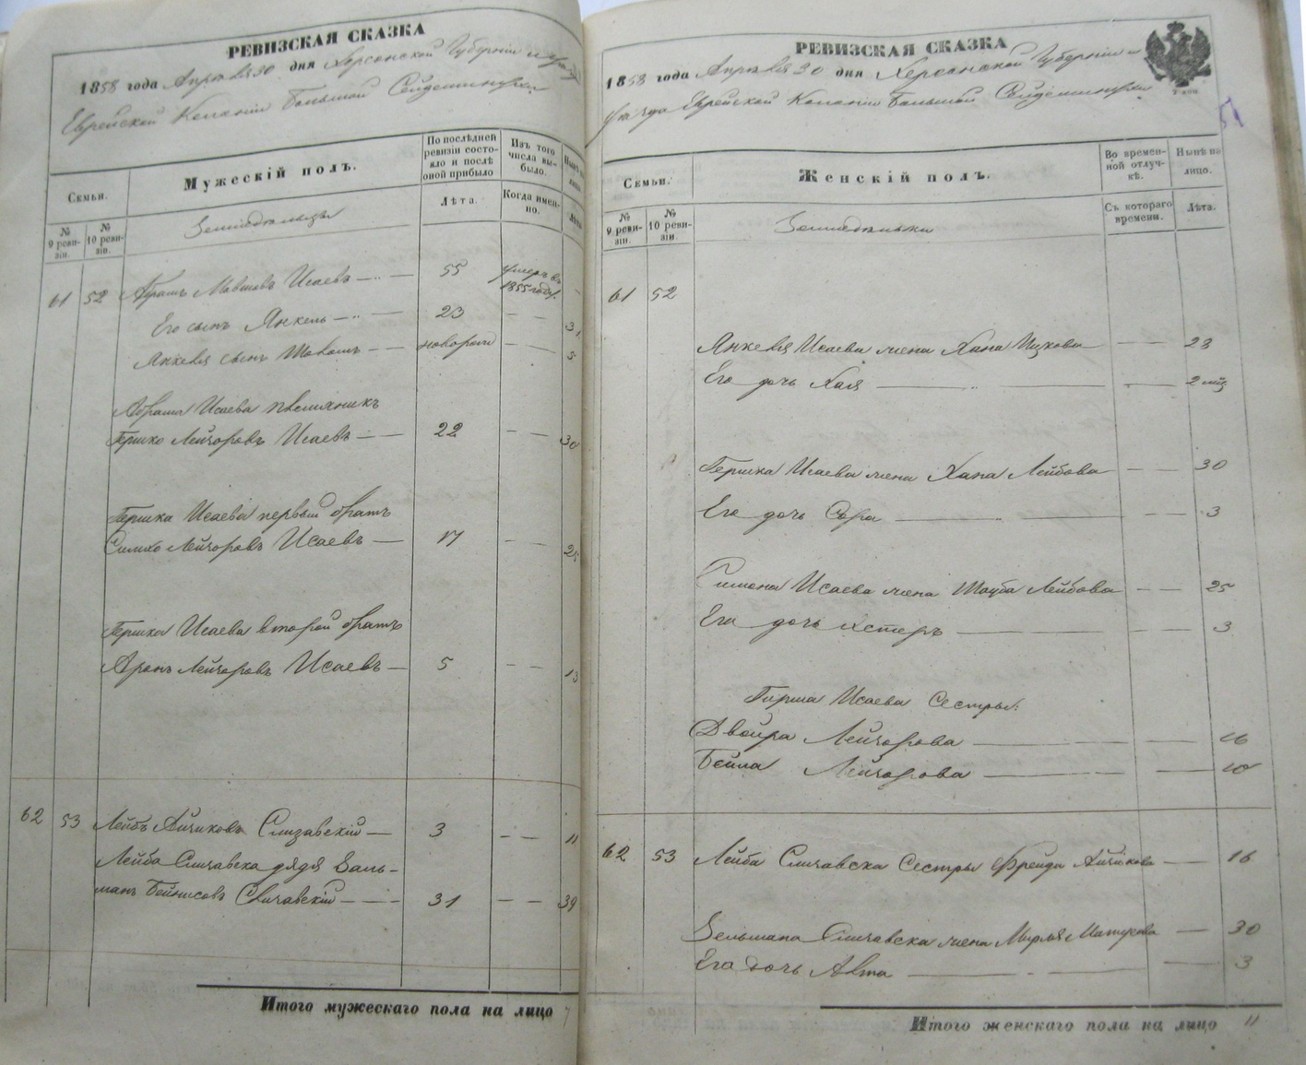 РЕВИЗСКАЯ СКАЗКА
1858 года Апрѣля 30 дня Херсонской Губерніи и уѣзда
Еврейской Колоніи Большой Сейдеминухи
Семьи.
Мужескій полъ.
По послѣдней ревизіи состояло и послѣ оной прибыло
Изъ того числа выбыло.
№ 9 ревизіи.
№ 10 ревизіи.
Земледѣльцы
Лѣта.
Когда именно.
61 52 Абрамъ Исаевъ 55 умеръ въ 1855 году
Его сынъ Янкель 23 31
Янкеля сынъ 5
Абрама Исаева племяникъ
Гершко Лейзоровъ Исаевъ 22 30
Гершка Исаева первый братъ
Симхо Лейзоровъ Исаевъ 17 25
Гершка Исаева второй братъ
Аронъ Лейзоровъ Исаевъ 5 13
62 53 Лейбъ Айзиковъ 3 11
Лейба дядя Зель-
манъ Бейнисовъ 31 39
Итого мужескаго пола на лицо 7
РЕВИЗСКАЯ СКАЗКА
1858 года Апрѣля 30 дня Херсонской Губерніи и
уѣзда Еврейской Колоніи Большой Сейдеминухи
51
Семьи.
Женскій полъ.
Во временной отлучкѣ.
Нынѣ на лицо.
№ 9 ревизіи.
№ 10 ревизіи.
Земледѣльцы
Съ котораго времени.
Лѣта.
61 52
Янкеля Исаева жена Хана Ицкова 28
Его дочь Хая 2
Гершка Исаева жена Хана Лейбова 30
Его дочь Сура 3
Исаева жена Тауба Лейбова 25
Его дочь Эстеръ 3
Гирша Исаева Сестры:
Двойра Лейзорова 16
Бейла Лейзорова 10
62 53 Лейба Сестры Фрейда Айзикова 16
Зельмана жена 30
Его дочь 3
Итого женскаго пола на лицо 11